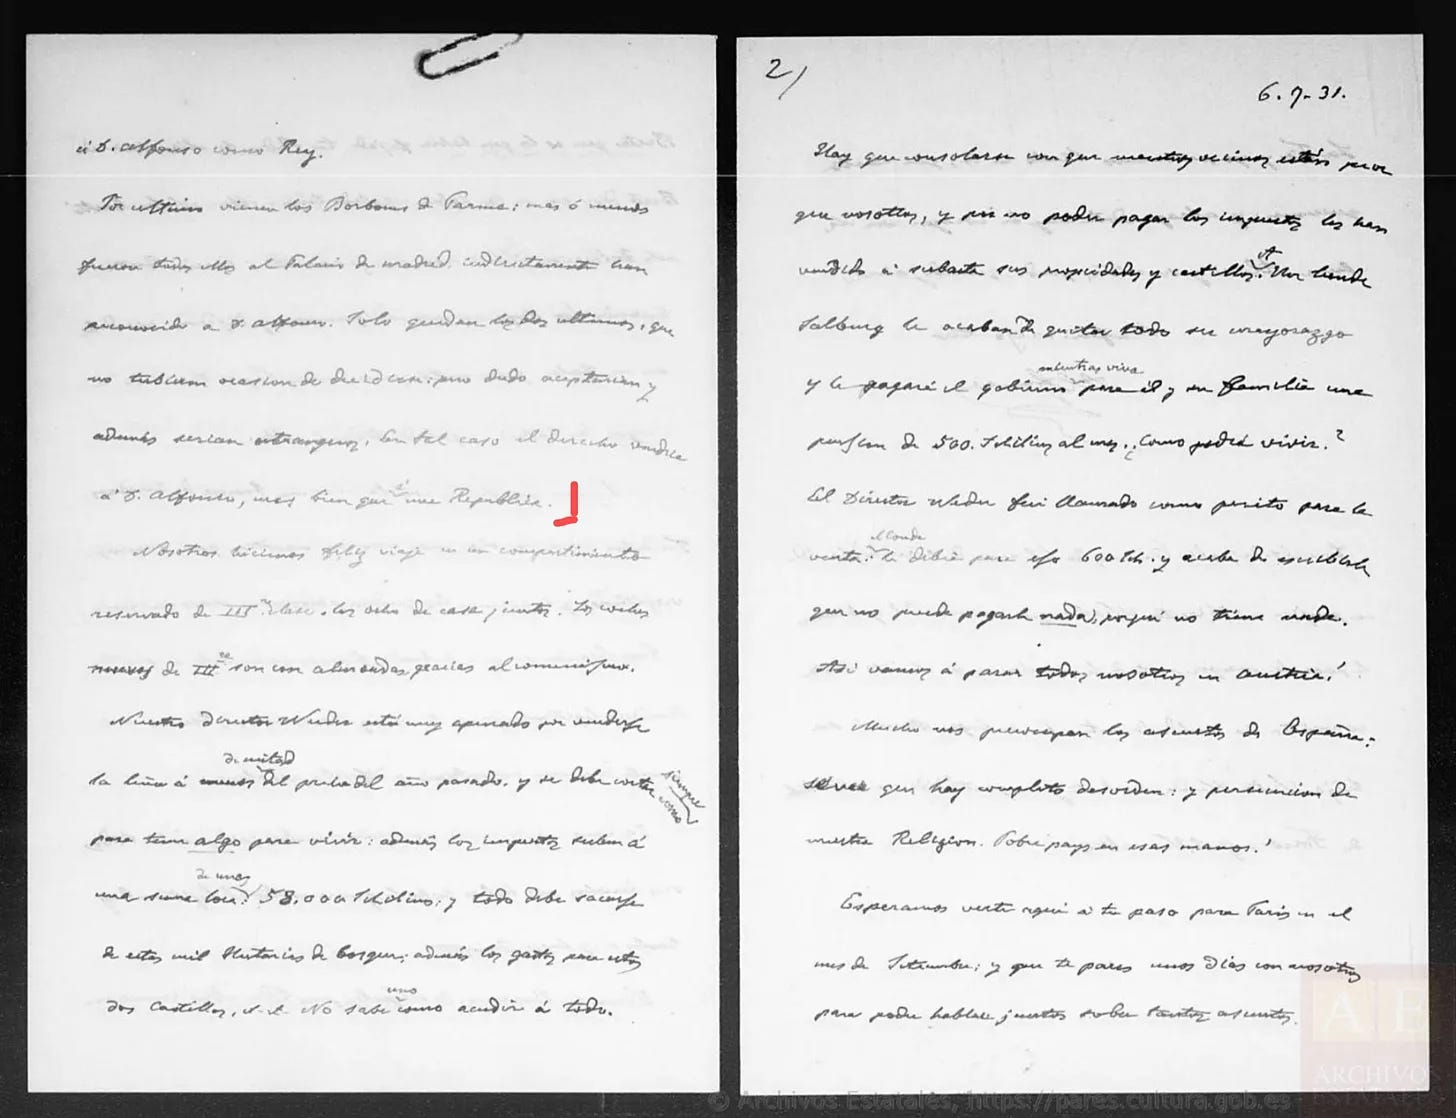 á D. Alfonso como Rey.
Por ultimo vienen los Borbones de Parma: mas ó menos
fueron todos ellos al Palacio de Madrid indirectamente han
reconocido a D. Alfonso. Solo quedan los dos ultimos, que
no tubieron ocasion de decidirse: pero dudo aceptarian y
además serian extrangeros. En tal caso el derecho vendria
a' D. Alfonso, mas bien que á una Republica.
Nosotros hicimos feliz viaje en un compartimiento
reservado de III.ª clase. los ocho de casa juntos. Los coches
nuevos de III.ª son con almoadas, gracias al comunismo.
Nuestro Director Weder está muy apurado por venderse
la leña á menos de mitad del precio del año pasado. y se debe cortar siempre como
para tener algo para vivir: además los impuestos suben á
una suma loca: de unos 58.000 Schilins; y todo debe sacarse
de estas mil Hectarias de bosque; además los gastos para estos
dos Castillos, et. et. No sabe uno como acudir á todo.
2/
6.9-31.
Hay que consolarse con que nuestros vecinos están peor
que nosotros, y por no poder pagar los impuestos les han
vendido á subasta sus propiedades y castillos. Al Von Conde
Salburg le acaban de quitar todo su mayorazgo
y le pagará el gobierno mientras viva para él y su familia una
pension de 500. Schilins al mes. ¿Como podrá vivir?
El Director Weder fui llamado como perito para la
venta: el Conde le debia para eso 600 Sch. y acaba de escribirle
que no puede pagarle nada, porque no tiene nada.
Asi vamos á parar todos nosotros en Austria!
Mucho nos preocupan los asuntos de España:
se vee que hay completo desorden: y persecucion de
nuestra Religion. Pobre pays en esas manos!
Esperamos verte aqui á tu paso para Paris en el
mes de Setembre; y que te pares unos dias con nosotros
para poder hablar juntos sobre tantos asuntos.
AE
ARCHIVOS
ESTATALES
© Archivos Estatales, https://pares.cultura.gob.es